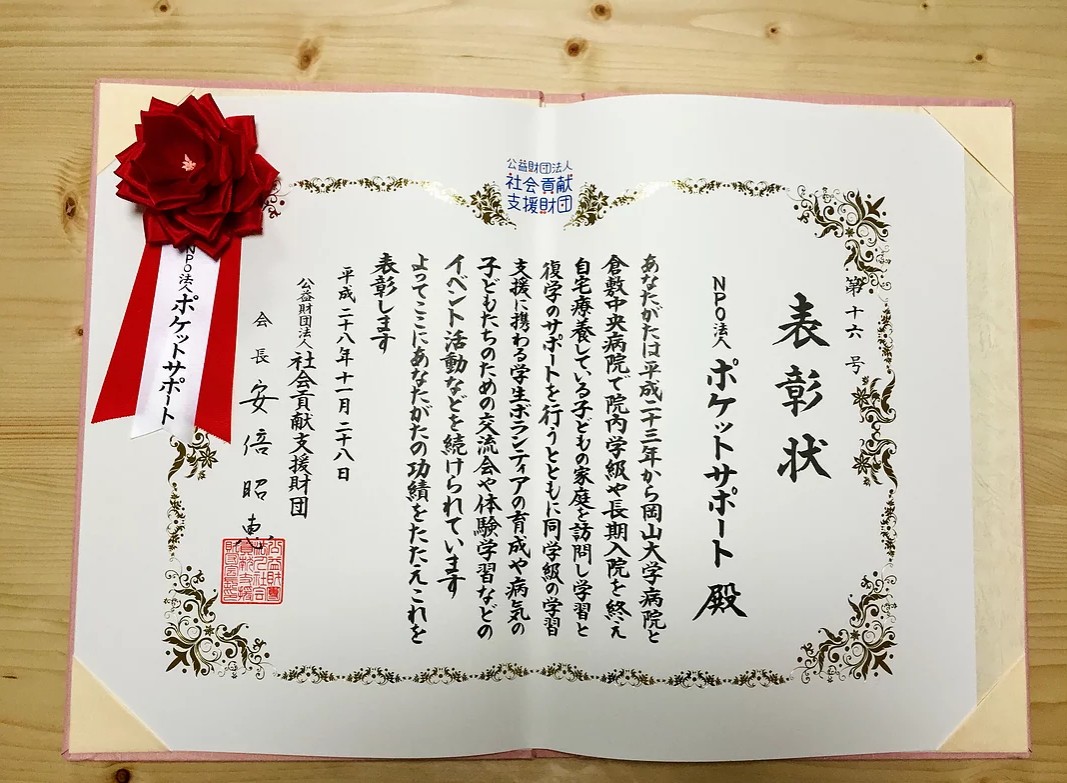 公益財団法人
社会貢献
支援財団
第十六号
表彰状
NPO法人 ポケットサポート 殿
あなたがたは平成二十三年から岡山大学病院と
倉敷中央病院で院内学級や長期入院を終え
自宅療養している子どもの家庭を訪問し学習と
復学のサポートを行うとともに同学級の学習
支援に携わる学生ボランティアの育成や病気の
子どもたちのための交流会や体験学習などの
イベント活動などを続けられています
よってここにあなたがたの功績をたたえこれを
表彰します
平成二十八年十一月二十八日
公益財団法人 社会貢献支援財団
会長 安倍昭恵
NPO法人 ポケットサポート